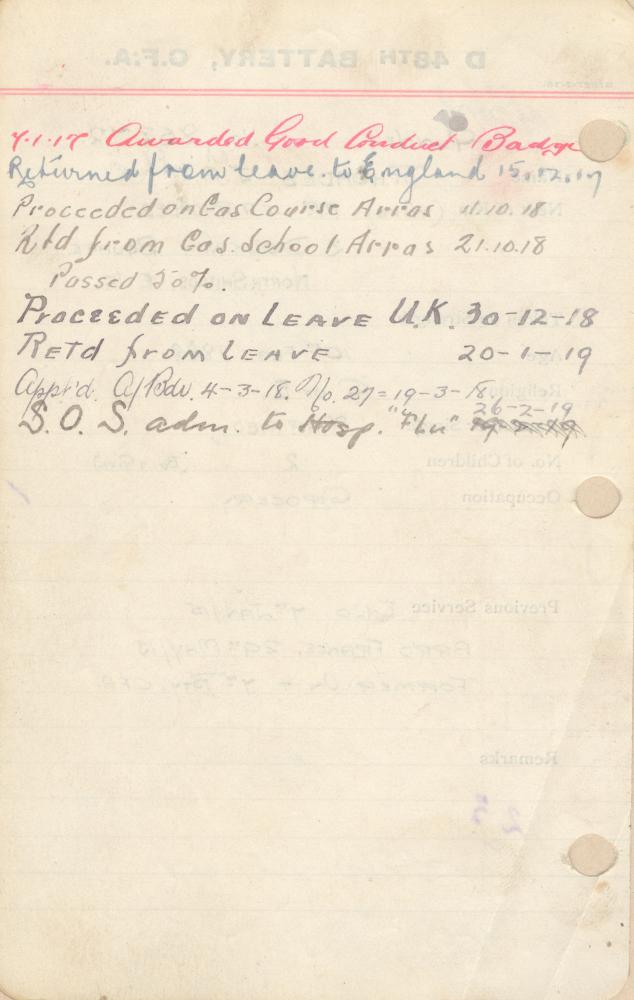 7.1.17 Awarded Good Conduct Badge
Returned from leave to England 15.12.17
Proceeded on Gas Course Arras 11.10.18
Rtd from Gas School Arras 21.10.18
Passed 50%.
Proceeded on Leave U.K. 30-12-18
Retd from Leave 20-1-19
Appt'd. A/Bdr. 4-3-18. P/o. 27 = 19-3-18
26-2-19
S.O.S. adm. to Hosp. "Flu"